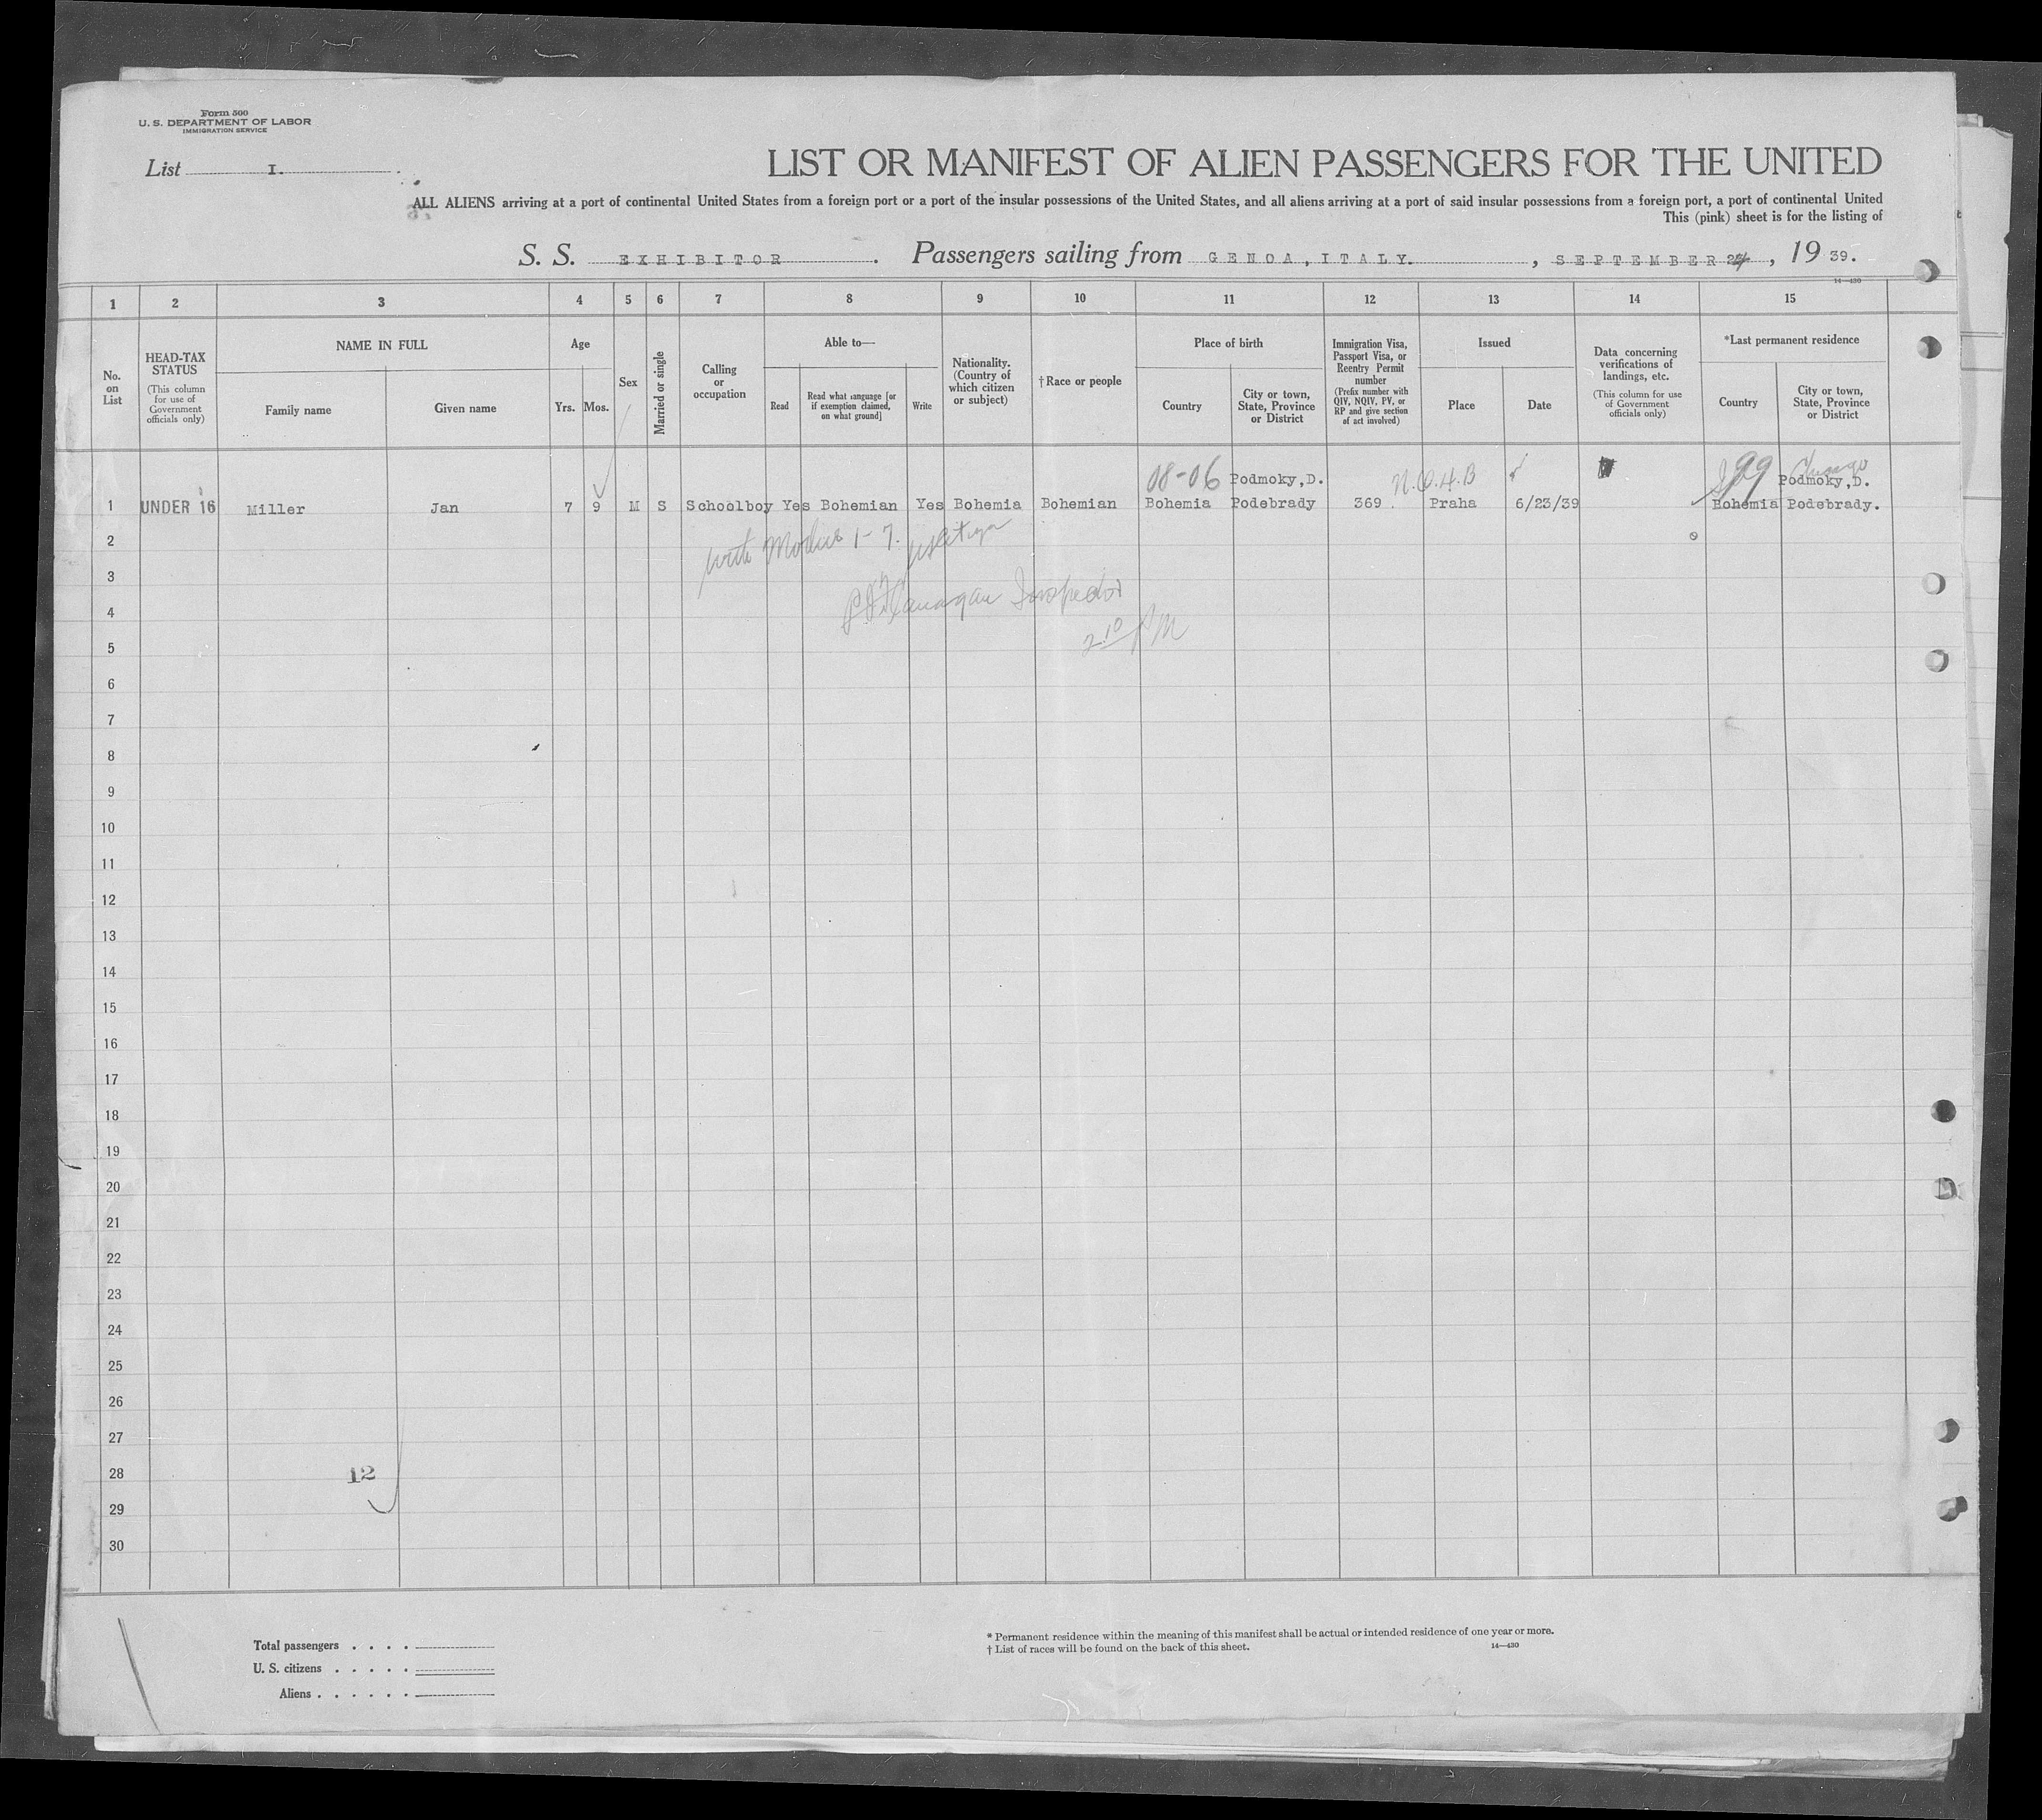 Form 500
U. S. DEPARTMENT OF LABOR
IMMIGRATION SERVICE
List I.
LIST OR MANIFEST OF ALIEN PASSENGERS FOR THE UNITED
ALL ALIENS arriving at a port of continental United States from a foreign port or a port of the insular possessions of the United States, and all aliens arriving at a port of said insular possessions from a foreign port, a port of continental United
This (pink) sheet is for the listing of
S. S. EXHIBITOR. Passengers sailing from GENOA, ITALY., SEPTEMBER, 19 39.
14—430
1 2 3 4 5 6 7 8 9 10 11 12 13 14 15
No. on List
HEAD-TAX STATUS
(This column for use of Government officials only)
NAME IN FULL
Family name
Given name
Age
Yrs. Mos.
Sex
Married or single
Calling or occupation
Able to—
Read
Read what language [or if exemption claimed, on what ground]
Write
Nationality. (Country of which citizen or subject)
†Race or people
Place of birth
Country
City or town, State, Province or District
Immigration Visa, Passport Visa, or Reentry Permit number
(Prefix number with QIV, NQIV, PV, or RP and give section of act involved)
Issued
Place
Date
Data concerning verifications of landings, etc.
(This column for use of Government officials only)
*Last permanent residence
Country
City or town, State, Province or District
08-06 Podmoky, D. 99 Chicago Podmoky, D.
1 UNDER 16 Miller Jan 7 9 M S Schoolboy Yes Bohemian Yes Bohemia Bohemian Bohemia Podebrady 369 Praha 6/23/39 Bohemia Podebrady.
2
3
4
5
6
7
8
9
10
11
12
13
14
15
16
17
18
19
20
21
22
23
24
25
26
27
28
29
30
Inspector
2 10 PM
12
Total passengers . . . .
U. S. citizens . . . . .
Aliens . . . . . .
* Permanent residence within the meaning of this manifest shall be actual or intended residence of one year or more.
† List of races will be found on the back of this sheet.
14—430